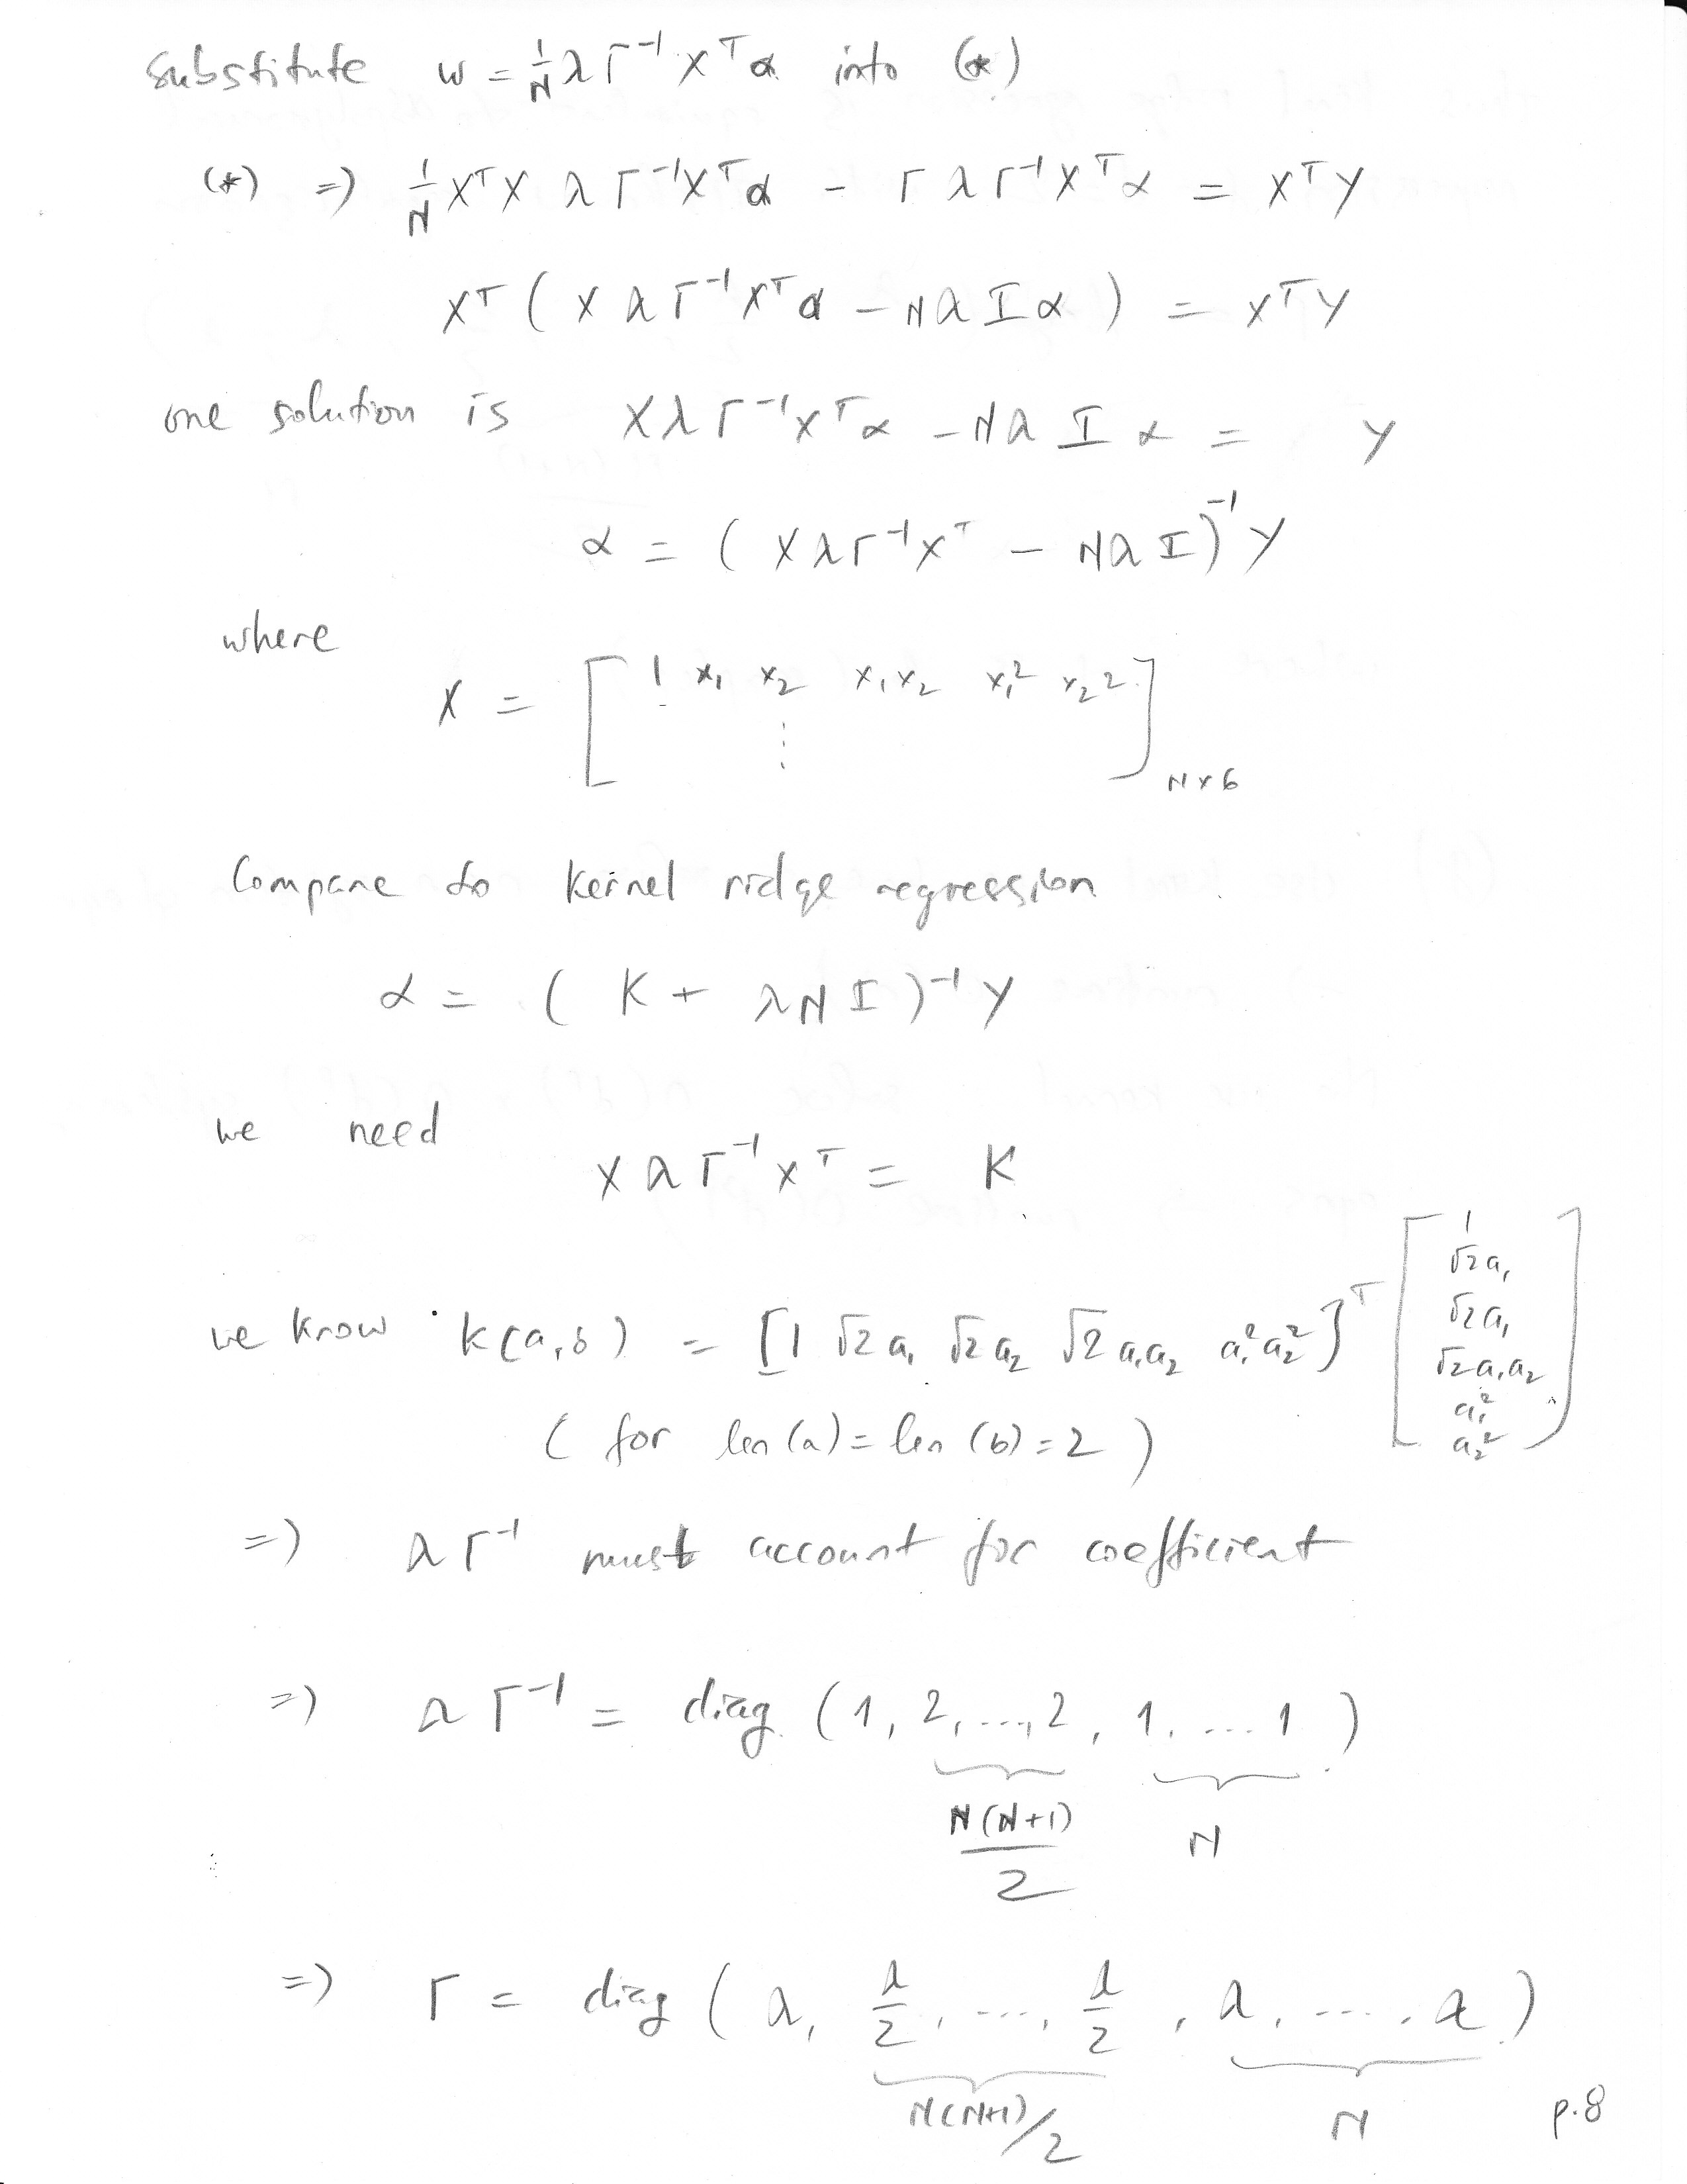 substitute w = 1/N λ Γ⁻¹ Xᵀ α into (*)
(*) ⇒ 1/N XᵀX λ Γ⁻¹Xᵀα − Γ λ Γ⁻¹ Xᵀα = XᵀY
Xᵀ ( X λ Γ⁻¹Xᵀα − Nλ I α ) = XᵀY
one solution is Xλ Γ⁻¹Xᵀα − Nλ I α = Y
α = ( XλΓ⁻¹Xᵀ − Nλ I )⁻¹ Y
where
X = [ 1 x₁ x₂ x₁x₂ x₁² x₂² ⋮ ] N×6
Compare to kernel ridge regression
α = ( K + λN I )⁻¹ Y
we need
X λ Γ⁻¹ Xᵀ = K
we know k(a,b) = [1 √2a₁ √2a₂ √2a₁a₂ a₁² a₂²]ᵀ [ 1 √2a₁ √2a₁ √2a₁a₂ a₁² a₂² ]
( for len(a) = len(b) = 2 )
⇒ λ Γ⁻¹ must account for coefficient
⇒ λ Γ⁻¹ = diag ( 1, 2, ..., 2, 1, .... 1 )
N(N+1)/2 N
⇒ Γ = diag ( λ, λ/2, ..., λ/2, λ, ...., λ )
N(N+1)/2 N
p.8